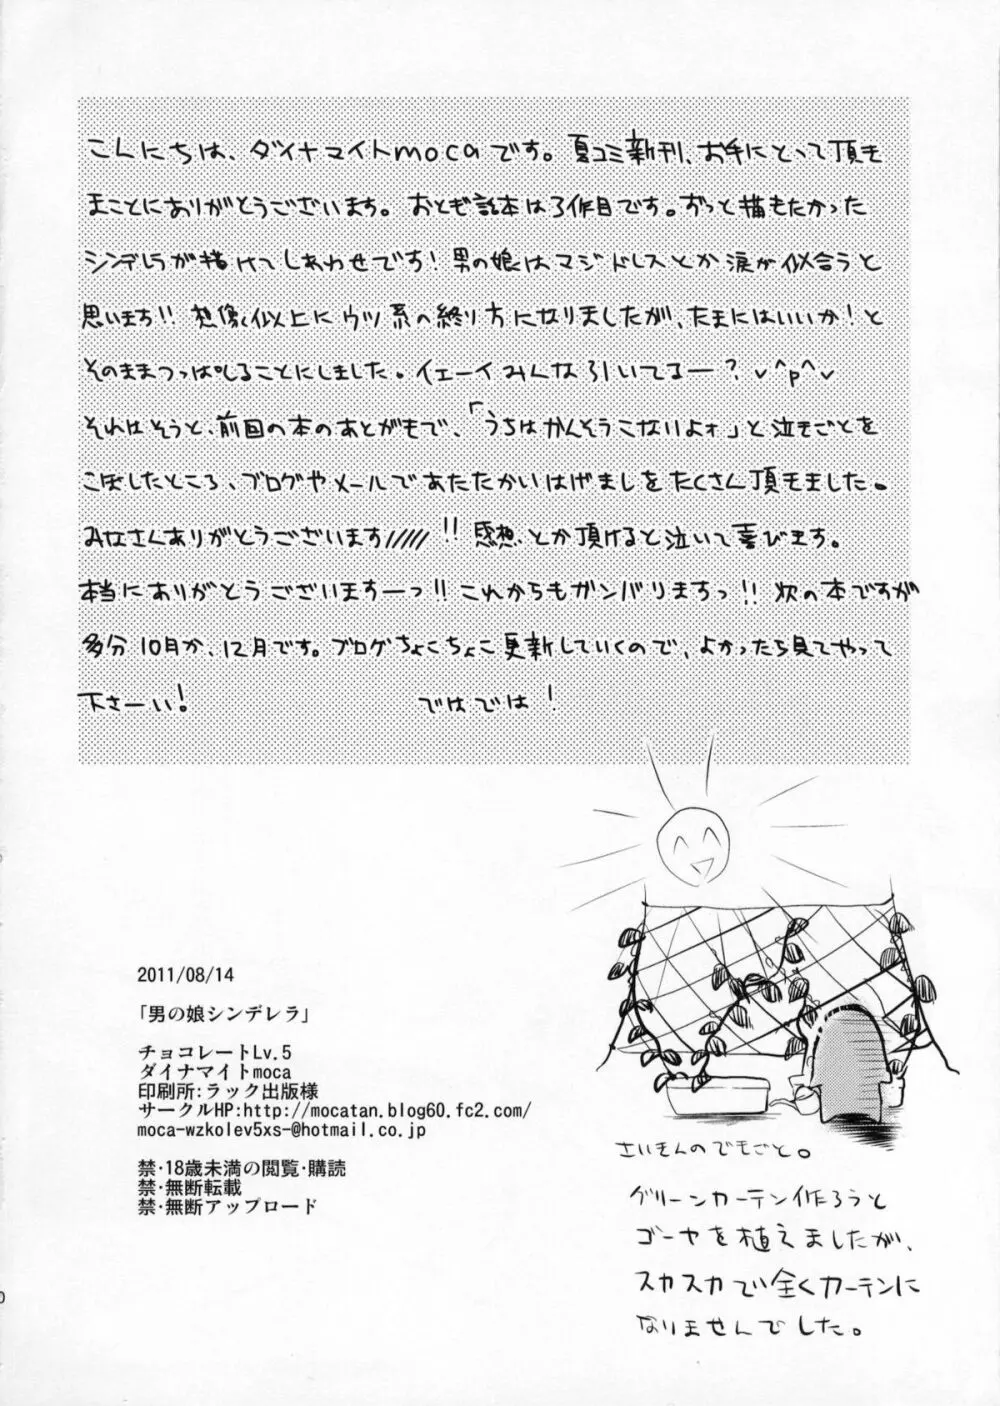 こんにちは、ダイナマイトmocaです。夏コミ新刊、お手にとって頂き
まことにありがとうございます。おとぎ話本は3作目です。ずっと描きたかった
シンデレラが描けてしあわせです！男の娘はマジドレスとか涙が似合うと
思います!!想像以上にウツ系の終り方になりましたが、たまにはいいか！と
そのままつっぱしることにしました。イェーイみんな引いてるー？v^p^v
それはそうと、前回の本のあとがきで、「うちはかんそうこないよォ」と泣きごとを
こぼしたところ、ブログやメールであたたかいはげましをたくさん頂きました。
みなさんありがとうございます/////!!感想とか頂けると泣いて喜びます。
本当にありがとうございますーっ!!これからもガンバりますっ!!次の本ですが
多分10月か、12月です。ブログちょこちょこ更新していくので、よかったら見てやって
下さーい！ ではでは！
2011/08/14
「男の娘シンデレラ」
チョコレートLv.5
ダイナマイトmoca
印刷所:ラック出版様
サークルHP:http://mocatan.blog60.fc2.com/
moca-wzkolev5xs-@hotmail.co.jp
禁・18歳未満の閲覧・購読
禁・無断転載
禁・無断アップロード
さいきんのできごと。
グリーンカーテン作ろうと
ゴーヤを植えましたが、
スカスカで全くカーテンに
なりませんでした。